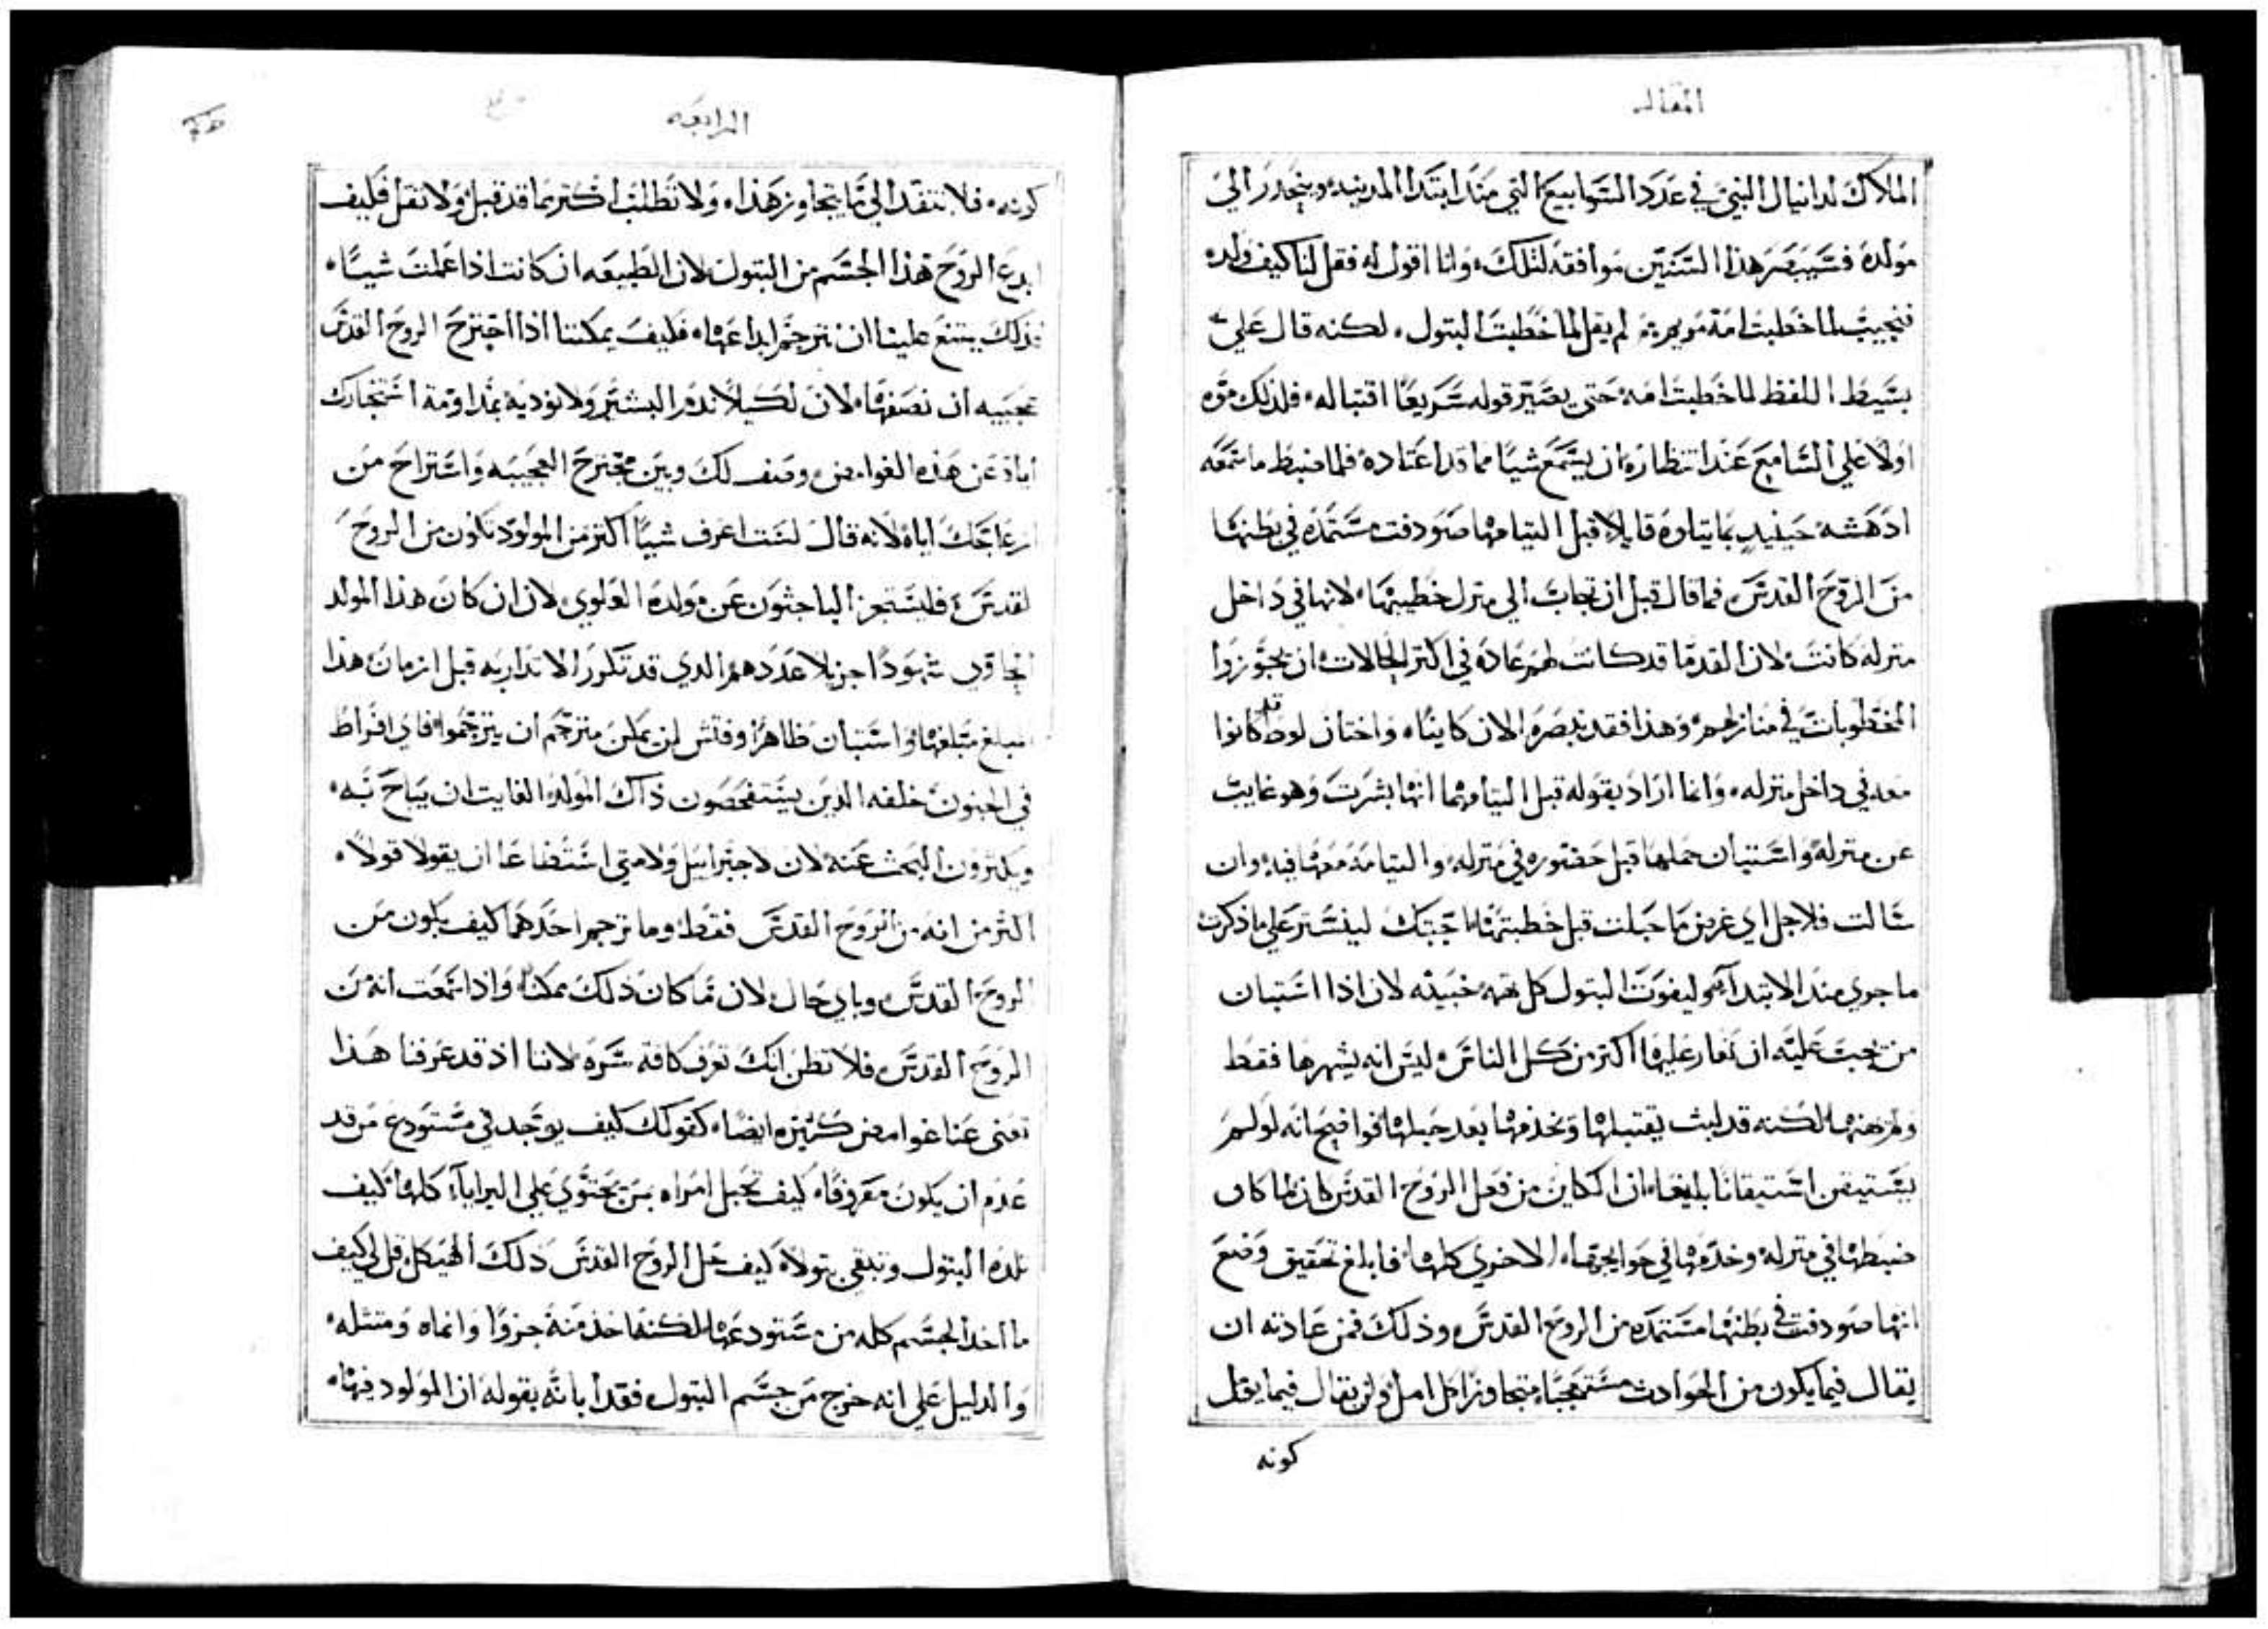 المقاله
الملاك لدانيال النبي في عدد السوابيع التي منذ ابتدا المدينه وينحدر الي
مولده فسيبصر هذا السنين موافقه لتلك، وانا اقول له فقل لنا كيف ولده
فنجيب لما خطبت امه مريم، لم يقل لما خطبت البتول، لكنه قال علي
بسيط اللفظ لما خطبت امه، حتي يصير قوله سريعًا اقتباله، فلذلك موه
اولًا علي السامع عند انتظاره ان يسمع شيًا مما قد اعتاده فلما ضبط ما سمعه
ادهشه حينيدٍ بما يتلوه قايلا قبل التيامهما صودفت مستمده في بطنها
من الروح القدس، فما قال قبل ان تجاب الي منزل خطيبها، لانها في داخل
منزله كانت، لان القدما قد كانت لهم عاده في اكثر الحالات ان يحوزوا
المخطوبات في منازلهم، وهذا فقد نبصره الان كاينًا، واختان لوط قد كانوا
معه في داخل منزله، وانما اراد بقوله قبل التيامهما انها بشرت وهو غايب
عن منزله واستبان حملها قبل حضوره في منزله، والتيامه معها فيه، وان
سالت فلاجل اي غرض ما حبلت قبل خطبتها، اجبتك ليستتر علي ما ذكرت
ما جري منذ الابتدآ، وليفوت البتول كل تهمه خبيثه لان اذا استبان
من يجب عليه ان يغار عليها اكثر من كل الناس، ليس انه يشهرها فقط
ويمتهنها، لكنه قد لبث يقتبلها ويخدمها بعد حبلها، فواضح انه لو لم
يستيقن استيقانًا بليغًا، ان الكاين من فعل الروح القدس كان لما كان
ضبطها في منزله، وخدمها في حوايجها، الاخري كلها، فابلغ تحقيق وضع
انها صودفت في بطنها مستمده من الروح القدس، وذلك فمن عادته ان
يقال فيما يكون من الحوادث مستعجبًا، متجاوزًا كل امل، ولن يقال فيما يقل
كونه
الرابعه
كونه، فلا تتقد الي ما يتجاوز هذا، ولا تطلب اكثر مما قد قيل، ولا تقل فكيف
ابدع الروح هذا الجسم من البتول، لان الطبيعه ان كانت اذا عملت شيًا،
فذلك يمتنع علينا ان نترجم ابداعها، فكيف يمكننا اذا اجترح الروح القدس
عجيبه ان نصفها، لان لكيلا تذم البشير ولا توديه بمداومة استخبارك
اياه عن هذه الغوامض، وصف لك وبين مجترح العجيبه واستراح من
ازعاجك اياه، لانه قال لست اعرف شيًا اكثر من المولود تكون من الروح
القدس، فليستحي الباحثون عن مولده العلوي، لان ان كان هذا المولد
الحاوي شهودًا جزيلا عددهم الذي قد تكرر الانذار به قبل ازمان هذا
مبلغ مبلغها، واستبان ظاهرًا وفتش لن يمكن مترجم ان يترجموا، فاي افراط
في الجنون خلفه الذين يستفحصون ذاك المولد الغايت ان يباح به،
ويكثرون البحث عنه لان لا جبراييل ولا متي استطاعا ان يقولا قولًا،
اكثر من انه من الروح القدس فقط، وما ترجم احدهما كيف يكون من
الروح القدس، وباي حال، لان ما كان ذلك ممكنًا، واذا سمعت انه من
الروح القدس، فلا تظن انك تعرف كافه سره، لاننا اذ قد عرفنا هذا
تخفي عنا غوامض كثيره ايضًا، كقولك كيف يوجد في مستودع من قد
عدم ان يكون مقرونًا، كيف تحبل امراه بمن يحتوي علي البرايآ كلها، كيف
تلده البتول وتبقي بتولًا، كيف خل الروح القدس ذلك الهيكل، قل لي كيف
ما اخذ الجسم كله من مستودعها، لكنه اخذ منه جزوًا وانماه ومثله،
والدليل علي انه خرج من جسم البتول، فقد ابانه بقوله ان المولود فيها،